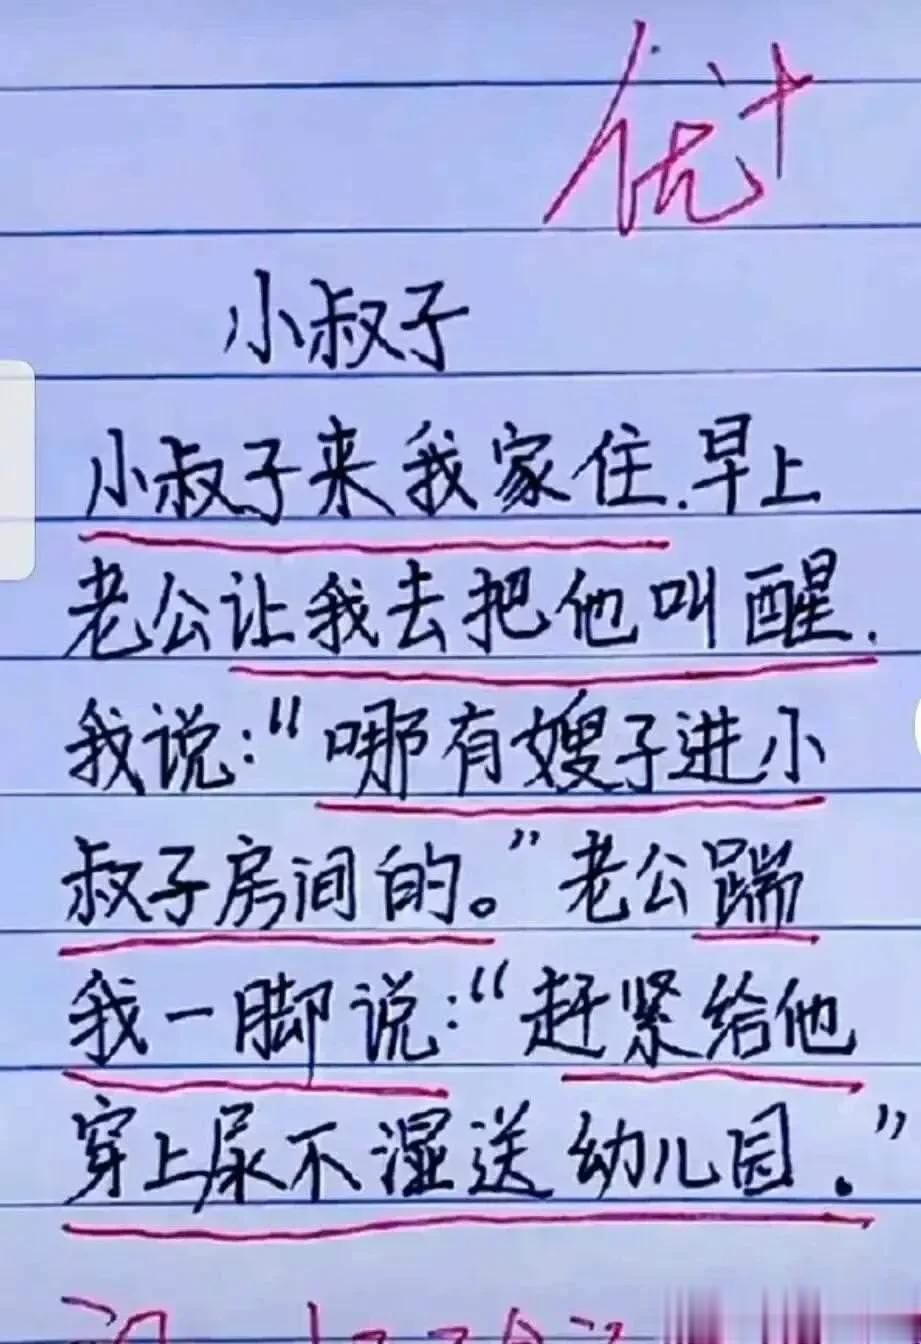 优+
小叔子
小叔子来我家住.早上
老公让我去把他叫醒.
我说:“哪有嫂子进小
叔子房间的。”老公踹
我一脚说:“赶紧给他
穿上尿不湿送幼儿园.”